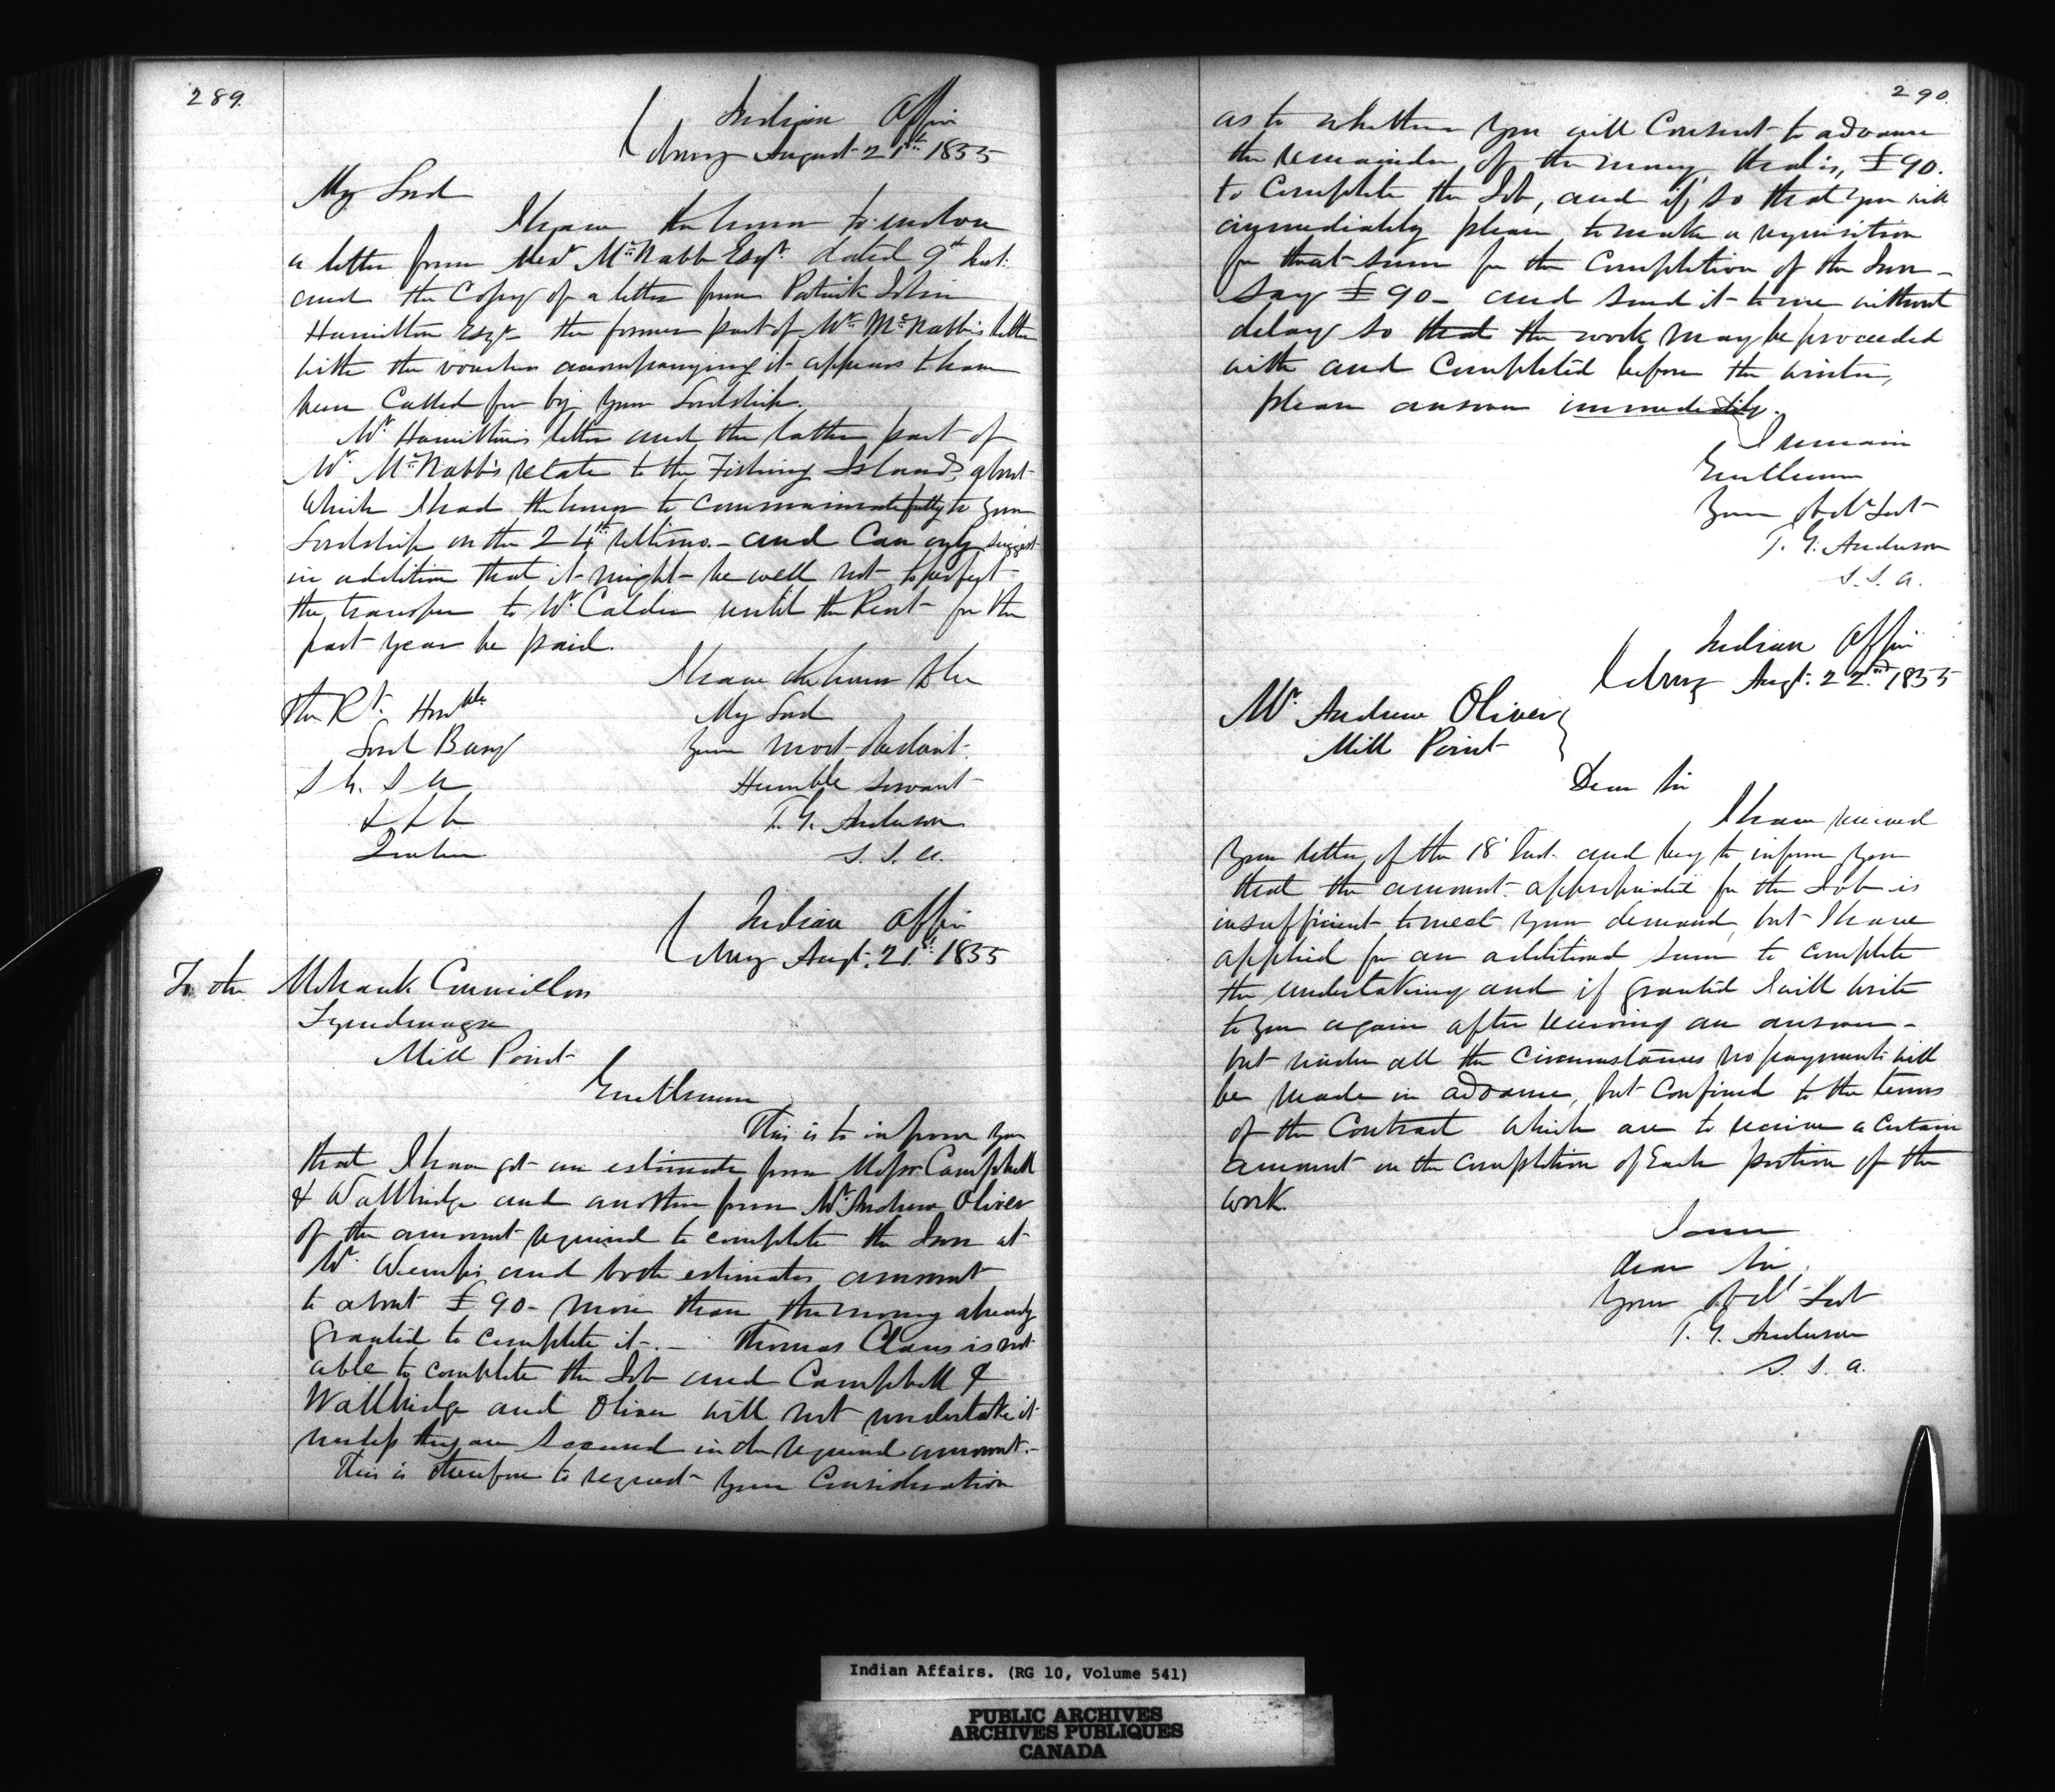 289.
Indian Office
Cobourg August 21st 1855
My Lord
I have the honor to enclose
a letter from Alexr McNabb Esqr. dated 9th Inst.
and the Copy of a letter from Patrick John
Hamilton Esqr - the former part of Mr. McNabb's letter
with the vouchers accompanying it appears to have
been Called for by Your Lordship.
Mr Hamilton's letter and the latter part of
Mr. McNabb's relate to the Fishing Islands, about
which I had the honor to communicate fully to Your
Lordship on the 24th ultimo. - and Can only suggest
in addition that it might be well not to perfect
the transfer to Mr Calder until the Rent for the
past year be paid.
I have the honor to be
The Rt. Honble.
My Lord
Lord Bury
Your most obedient
S. G. I A
Humble Servant
& & &
T. G. Anderson
Quebec
S. I. A.
Indian Office
Cobourg Augt. 21st 1855
To the Mohawk Councillors
Tyendinaga
Mill Point
Gentlemen
This is to inform You
that I have got an estimate from Messrs Campbell
& Wallbridge and another from Mr. Andrew Oliver
of the amount required to complete the Inn at
Mr. Wemps and both estimates amount
to about £90 - more than the money already
granted to complete it. - Thomas Claus is not
able to complete the Job and Campbell &
Wallbridge and Oliver will not undertake it
unless they are Secured in the required amount. -
This is therefore to request Your Consideration
290.
as to whether You will Consent to advance
the remainder of the money, that is, £90.
to Complete the Job, and if so that you will
immediately please to make a requisition
for that sum for the Completion of the Inn -
Say £90 - and Send it to me without
delay so that the work may be proceeded
with and Completed before the winter,
please answer immediately.
I remain
Gentlemen
Your Obdt Servt
T. G. Anderson
S. I. A.
Indian Office
Cobourg Augt. 22nd 1855
Mr. Andrew Oliver
Mill Point
Dear Sir
I have received
Your letter of the 18 Inst. and beg to inform You
that the amount appropriated for the Job is
insufficient to meet your demand, but I have
applied for an additional Sum to complete
the undertaking and if granted I will write
to You again after receiving an answer -
but under all the Circumstances no payments will
be made in advance, but Confined to the terms
of the Contract which are to receive a Certain
amount on the Completion of Each portion of the
work.
I am
dear Sir,
Your Obdt Servt
T. G. Anderson
S. I. A.
Indian Affairs. (RG 10, Volume 541)
PUBLIC ARCHIVES
ARCHIVES PUBLIQUES
CANADA